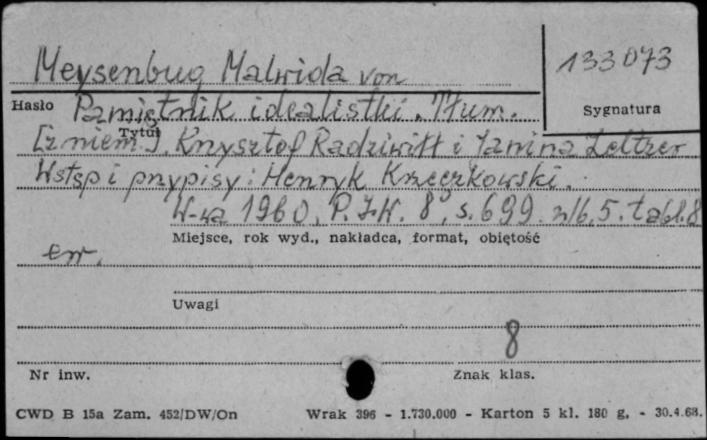 Meysenbug Malwida von
133073
Hasło Pamiętnik idealistki. Tłum.
Sygnatura
Tytuł
[z niem.]. Krzysztof Radziwiłł i Janina Zeltzer
Wstęp i przypisy: Henryk Krzeczkowski.
W-wa 1960, P.I.W. 8°, s. 699. nlb. 5. tabl. 8
Miejsce, rok wyd., nakładca, format, objętość
err.
Uwagi
8
Nr inw.
Znak klas.
CWD B 15a Zam. 452/DW/On Wrak 396 - 1.730.000 - Karton 5 kl. 180 g. - 30.4.68.